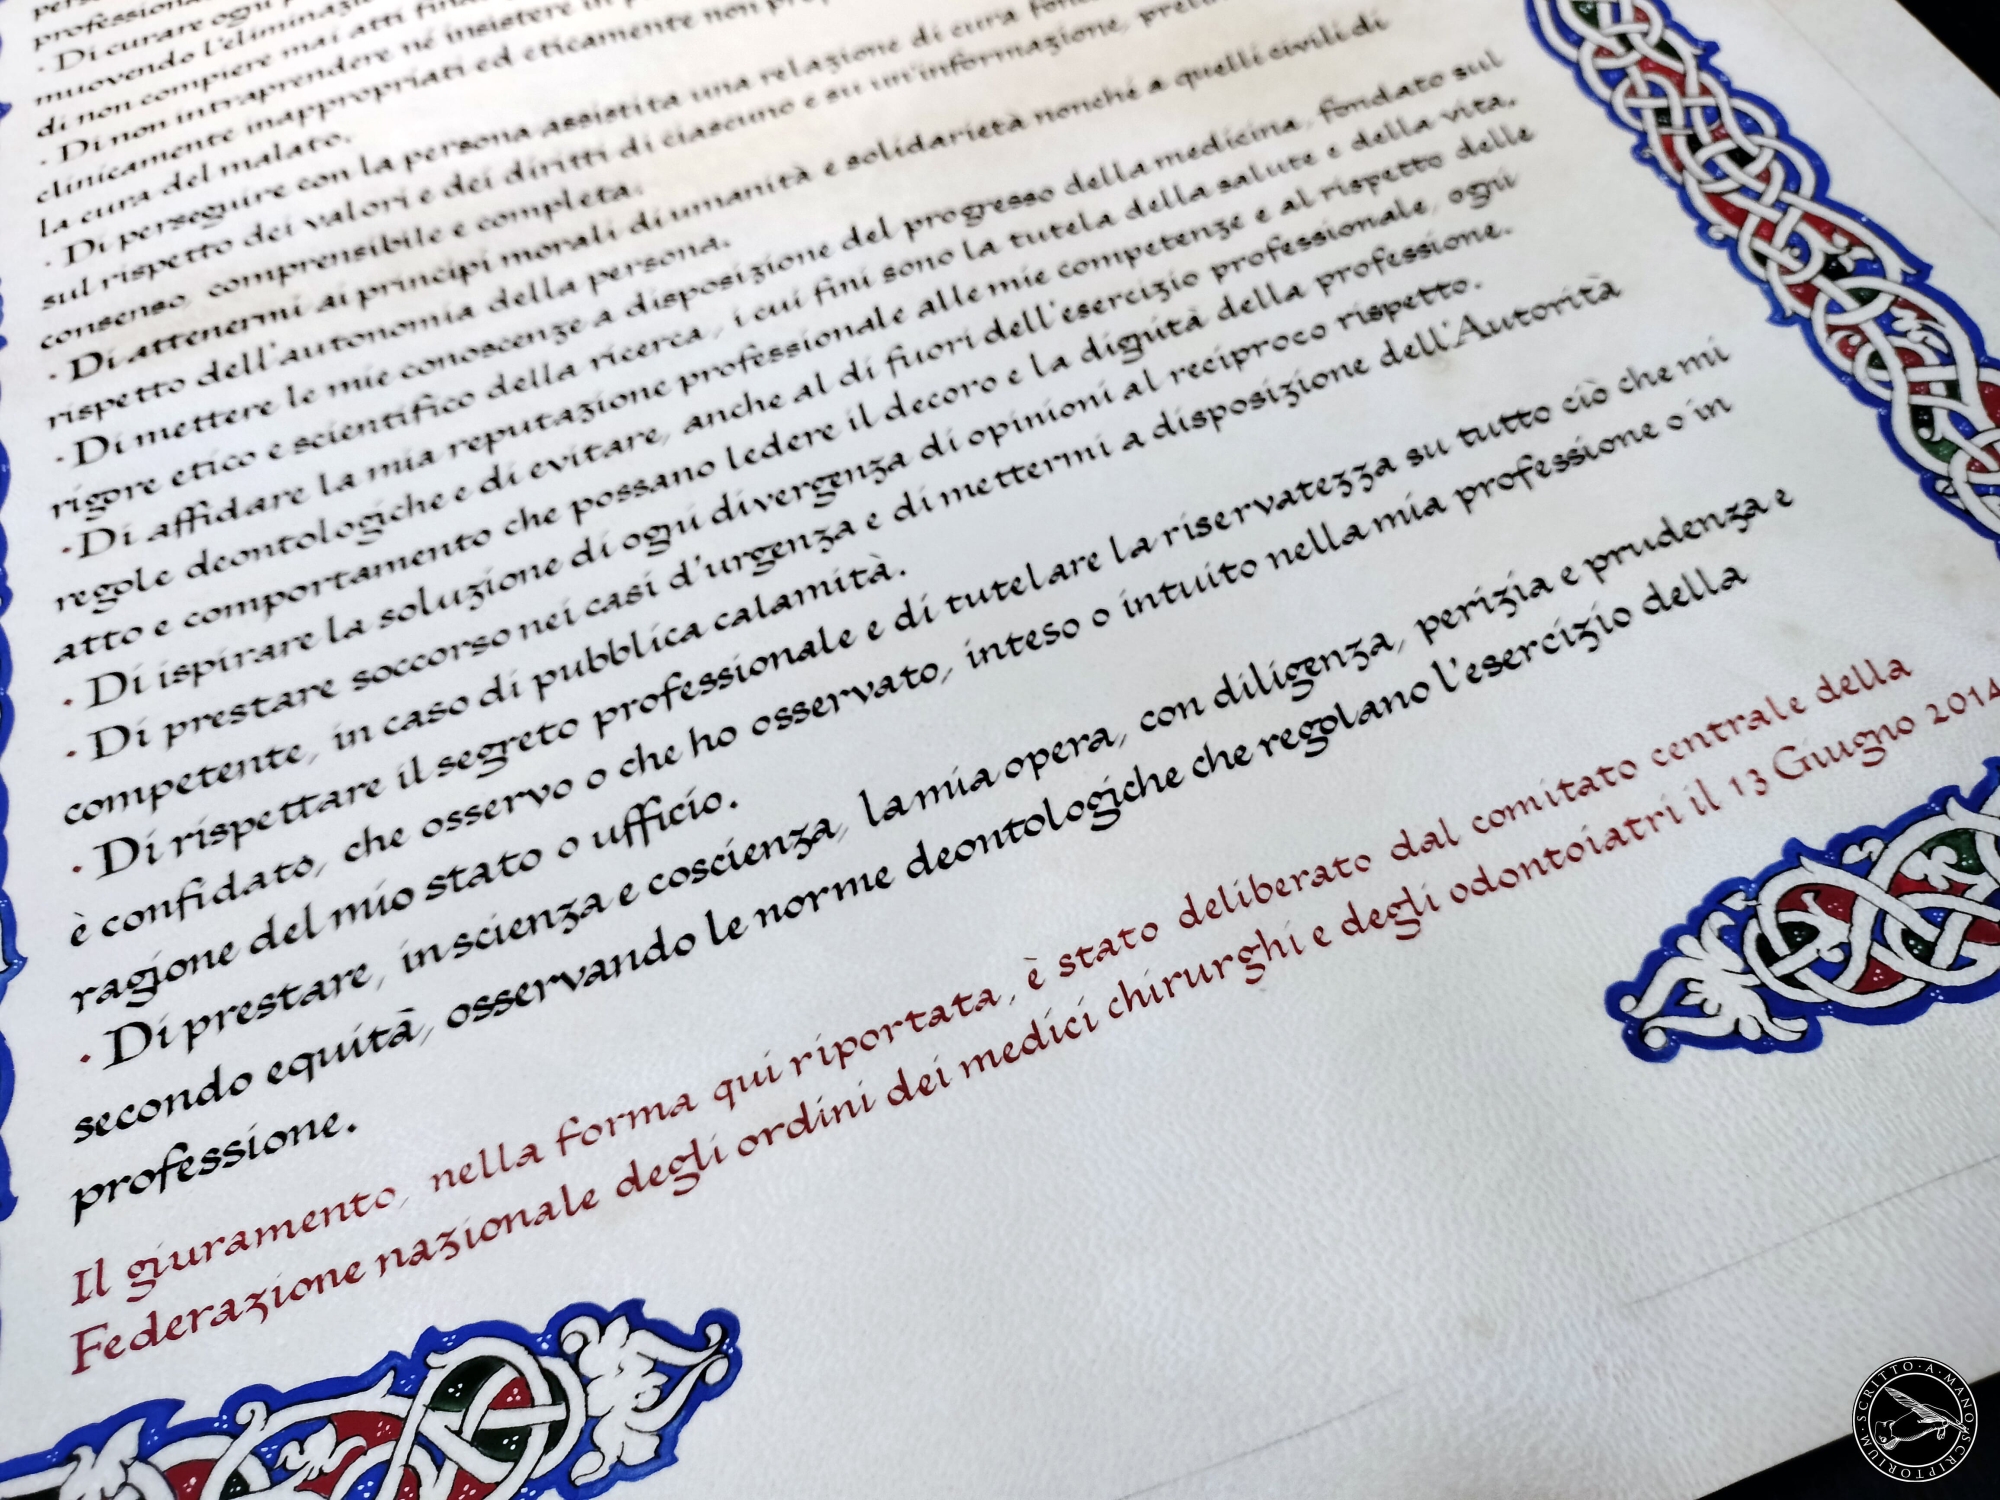 professional
· Di curare ogni
muovendo l'eliminazi
di non compiere mai atti fina
· Di non intraprendere né insistere in
clinicamente inappropriati ed eticamente non prop
la cura del malato.
· Di perseguire con la persona assistita una relazione di cura fond
sul rispetto dei valori e dei diritti di ciascuno e su un'informazione, preli
consenso, comprensibile e completa.
· Di attenermi ai principi morali di umanità e solidarietà nonché a quelli civili di
rispetto dell'autonomia della persona.
· Di mettere le mie conoscenze a disposizione del progresso della medicina, fondato sul
rigore etico e scientifico della ricerca, i cui fini sono la tutela della salute e della vita.
· Di affidare la mia reputazione professionale alle mie competenze e al rispetto delle
regole deontologiche e di evitare, anche al di fuori dell'esercizio professionale, ogni
atto e comportamento che possano ledere il decoro e la dignità della professione.
· Di ispirare la soluzione di ogni divergenza di opinioni al reciproco rispetto.
· Di prestare soccorso nei casi d'urgenza e di mettermi a disposizione dell'Autorità
competente, in caso di pubblica calamità.
· Di rispettare il segreto professionale e di tutelare la riservatezza su tutto ciò che mi
è confidato, che osservo o che ho osservato, inteso o intuito nella mia professione o in
ragione del mio stato o ufficio.
· Di prestare, in scienza e coscienza, la mia opera, con diligenza, perizia e prudenza e
secondo equità, osservando le norme deontologiche che regolano l'esercizio della
professione.
Il giuramento, nella forma qui riportata, è stato deliberato dal comitato centrale della
Federazione nazionale degli ordini dei medici chirurghi e degli odontoiatri il 13 Giugno 2014
SCRITTO·A·MANO·SCRIPTORIUM·